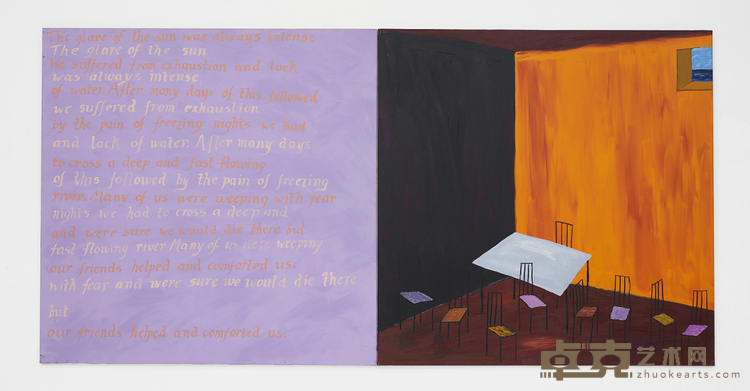 The glare of the sun was always intense
The glare of the sun
we suffered from exhaustion and lack
was always intense
of water. After many days of this followed
we suffered from exhaustion
by the pain of freezing nights we had
and lack of water. After many days
to cross a deep and fast flowing
of this followed by the pain of freezing
river. Many of us were weeping with fear
nights we had to cross a deep and
and were sure we would die there but
fast flowing river Many of us were weeping
our friends helped and comforted us.
with fear and were sure we would die there
but
our friends helped and comforted us.
卓克艺术网
zhuokearts.com